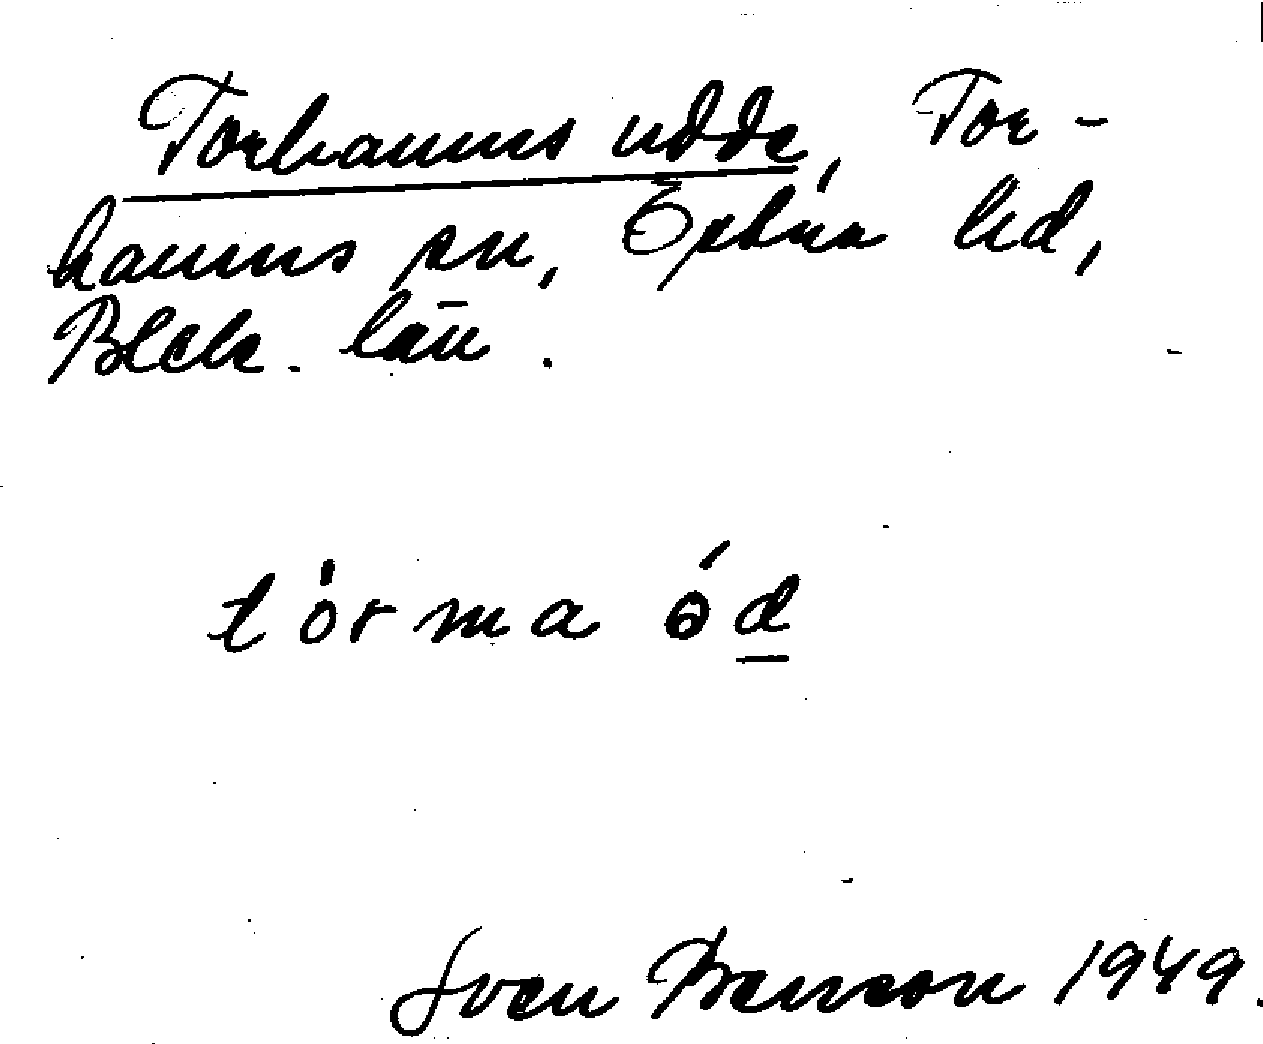 Torhamns udde, Tor-
hamns sn, Östra hd,
Blek. län.
tórma ód
Sven Benson 1949.